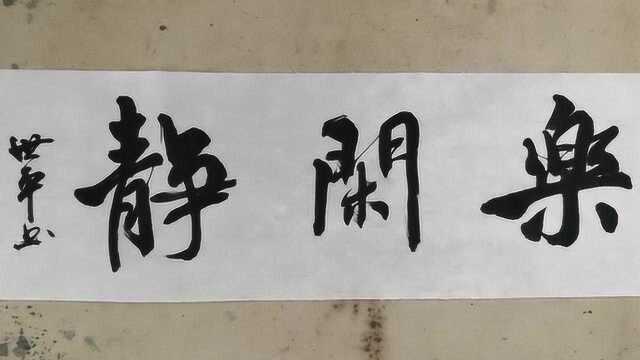 樂閑靜
世平书